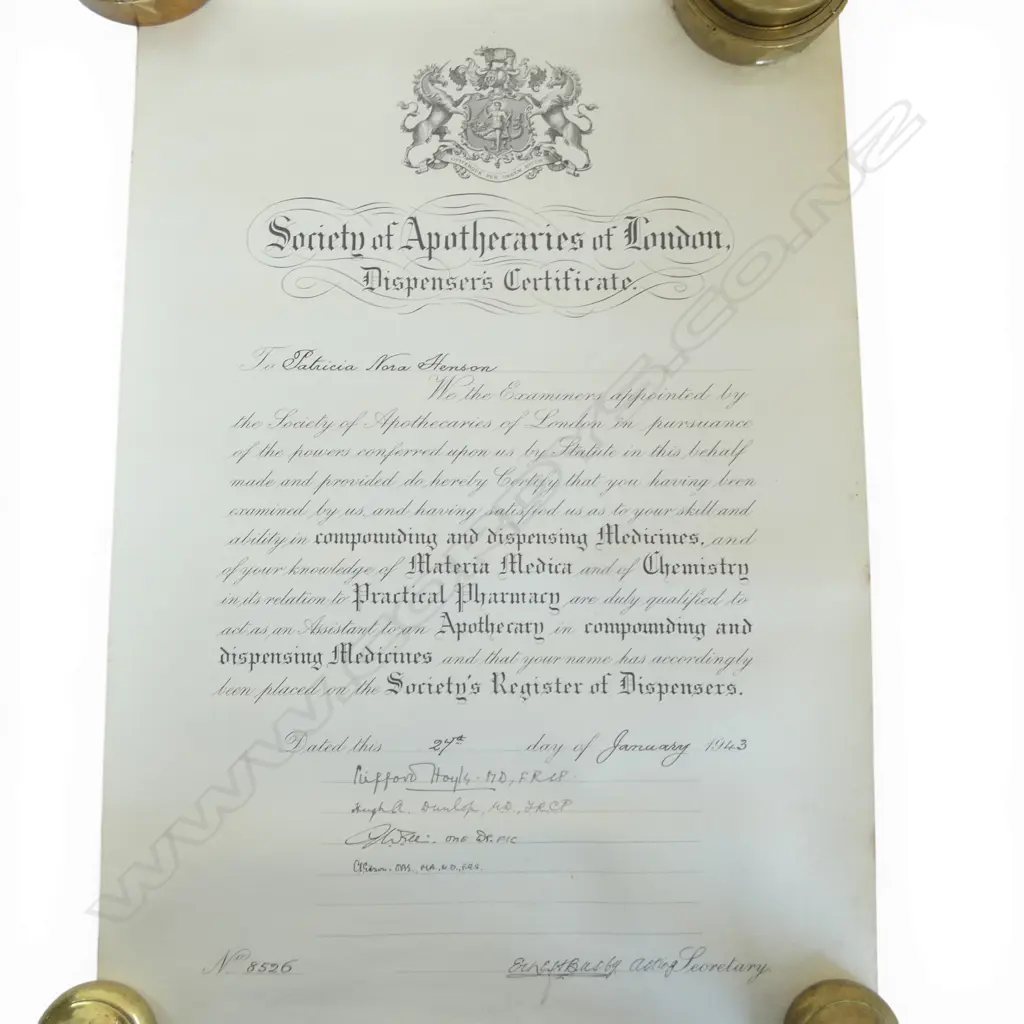 Society of Apothecaries of London,
Dispenser's Certificate.
To Patricia Nora Henson
We the Examiners appointed by
the Society of Apothecaries of London in pursuance
of the powers conferred upon us by Statute in this behalf
made and provided do hereby Certify that you having been
examined by us, and having satisfied us as to your skill and
ability in compounding and dispensing Medicines, and
of your knowledge of Materia Medica and of Chemistry
in its relation to Practical Pharmacy are duly qualified to
act as an Assistant to an Apothecary in compounding and
dispensing Medicines and that your name has accordingly
been placed on the Society's Register of Dispensers.
Dated this 27th day of January 1943
Clifford Hoyle. MD, FRCP
Hugh A. Dunlop, MD, FRCP
No. 8526
Ernest Busby Acting Secretary.